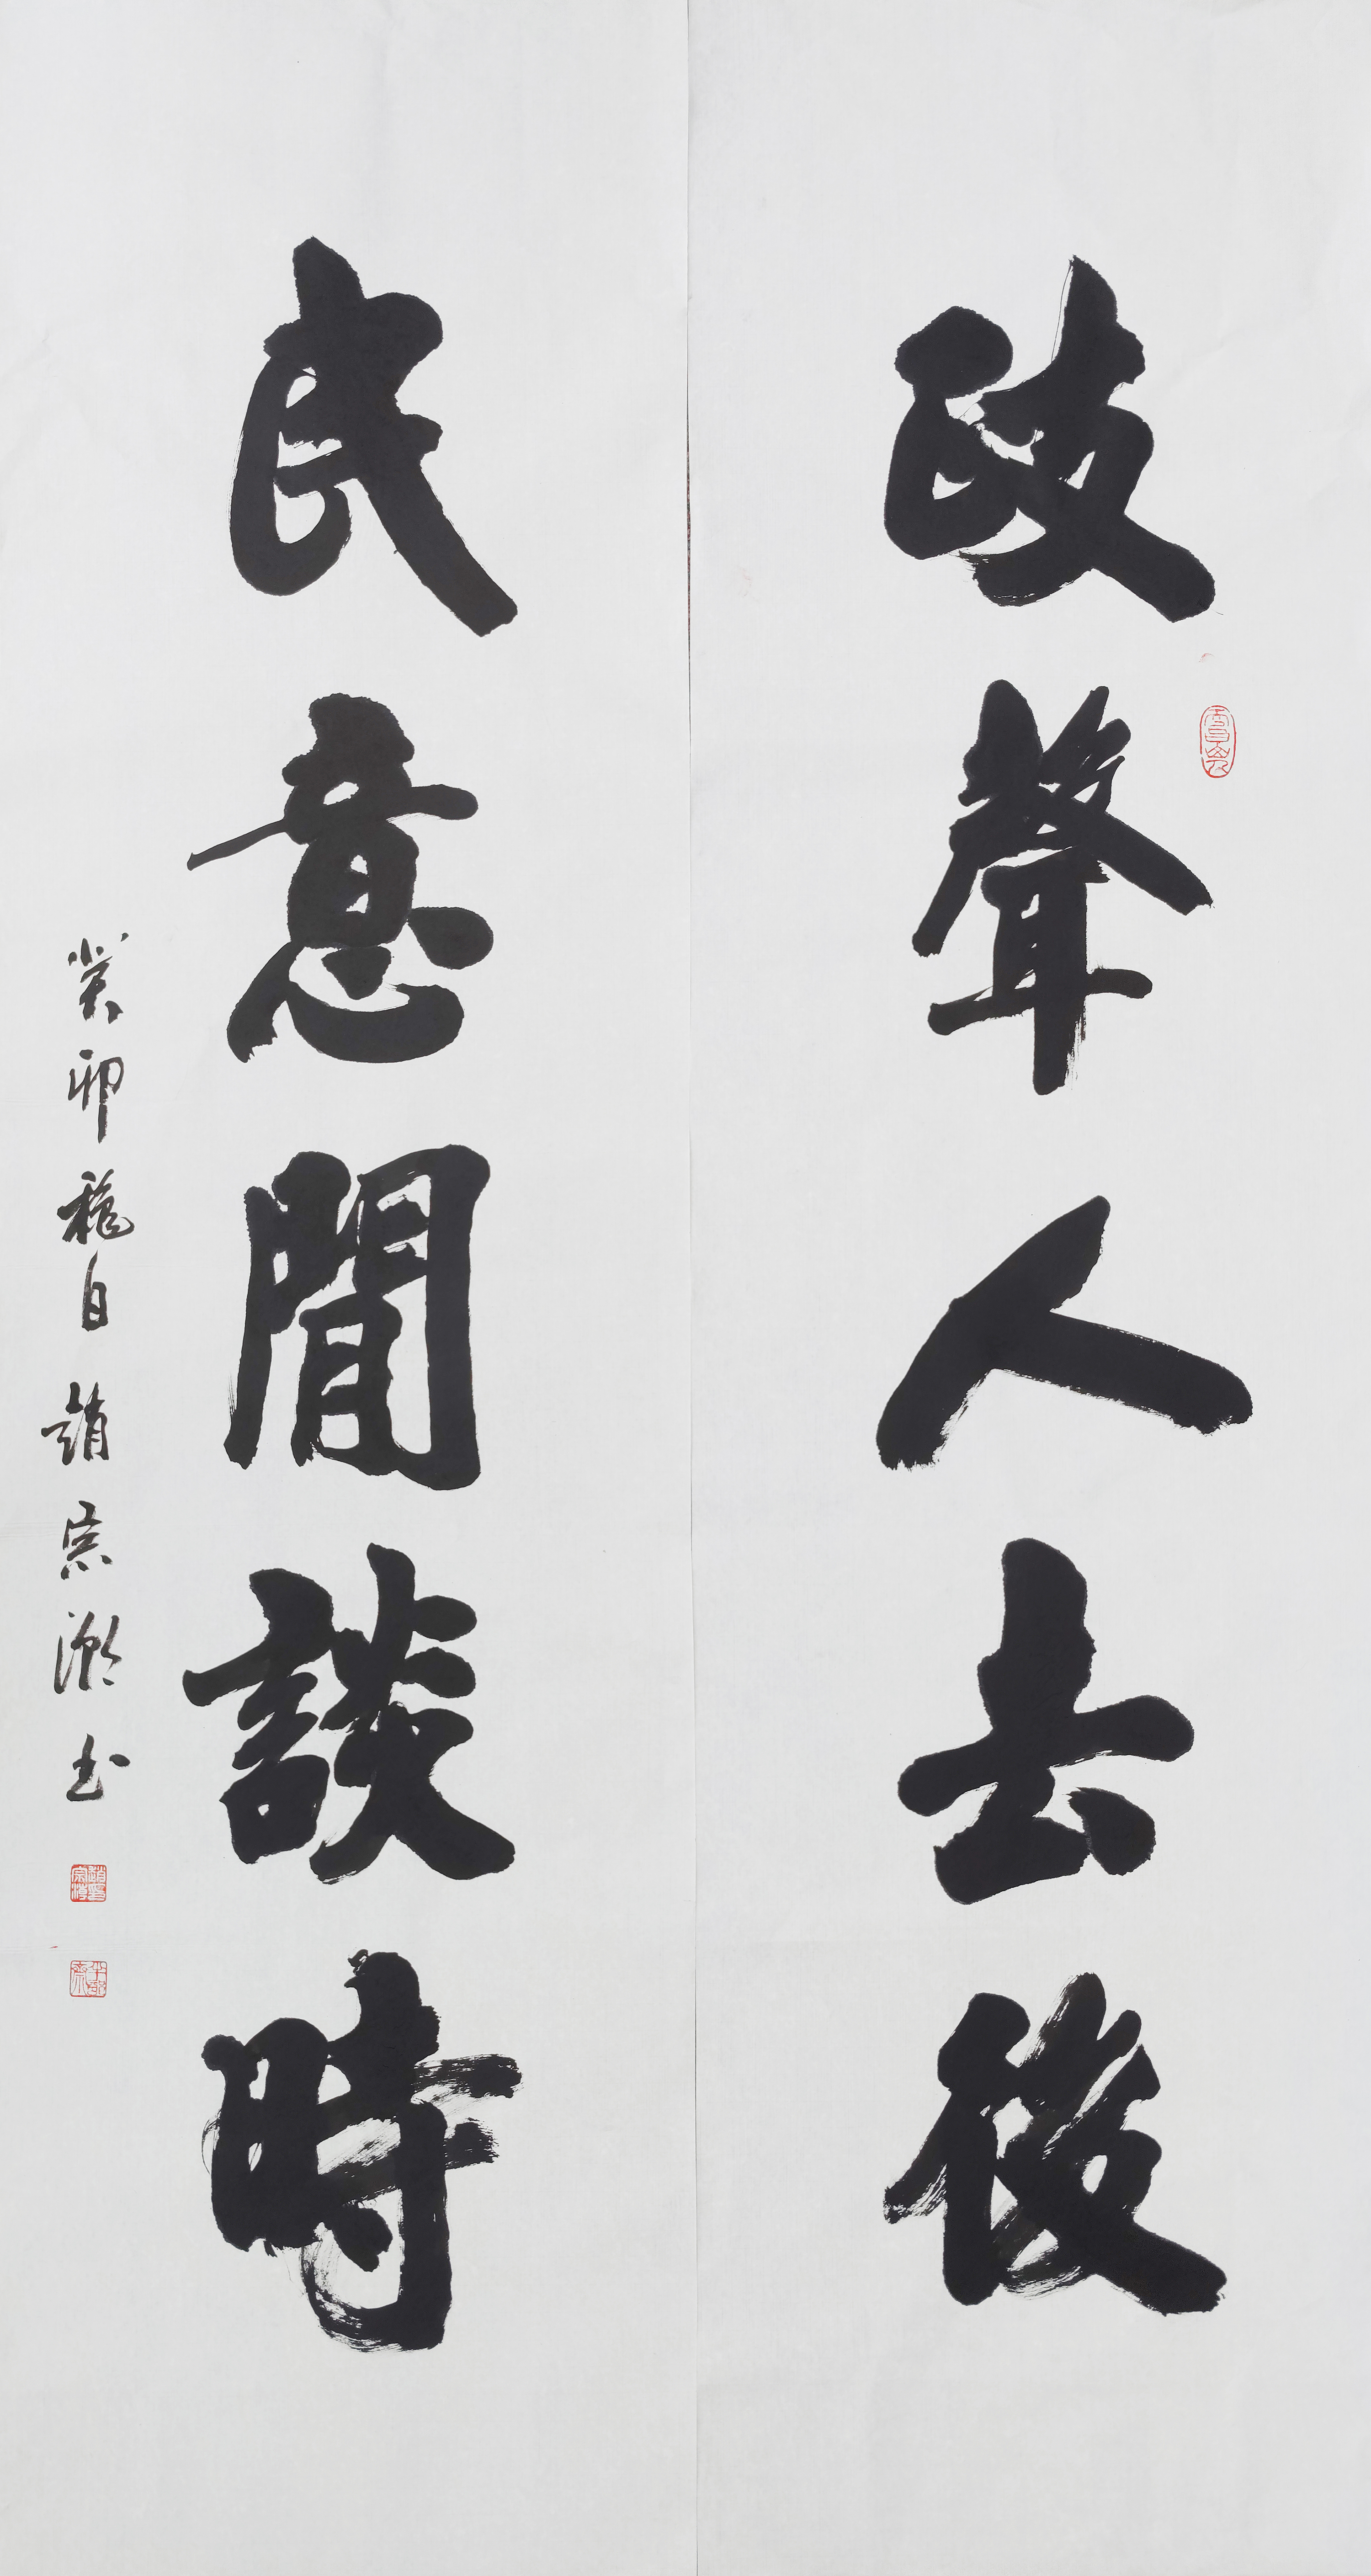 政聲人去後
民意閒談時
癸卯秋日趙宗溆书